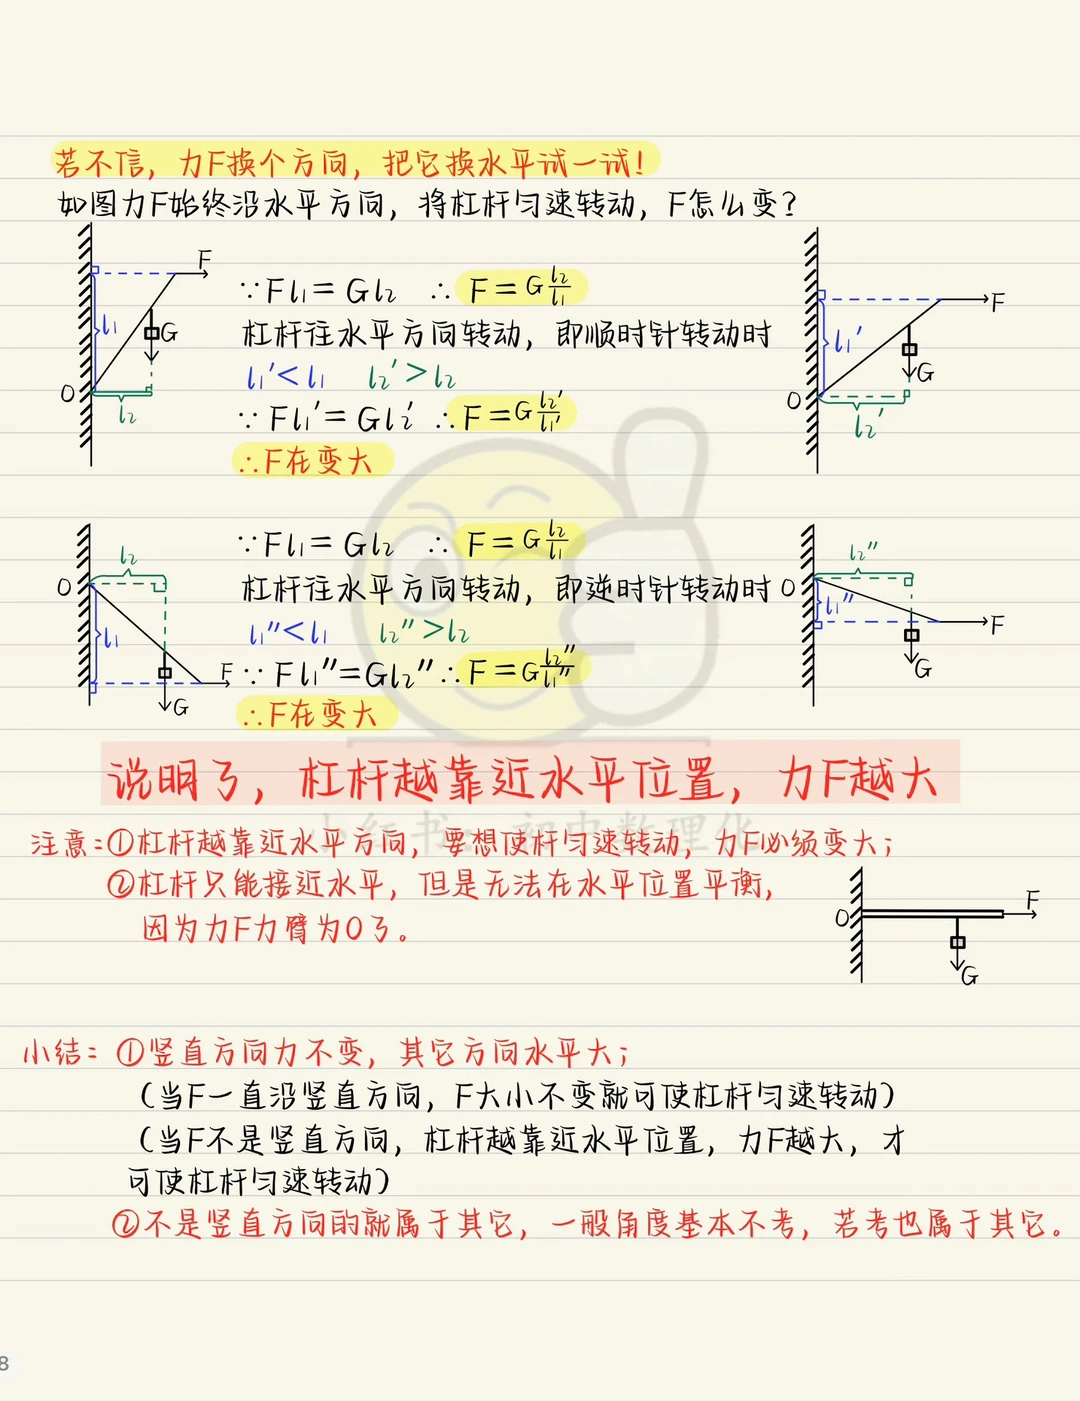 若不信，力F换个方向，把它换水平试一试！
如图力F始终沿水平方向，将杠杆匀速转动，F怎么变？
F
l₁
G
O
l₂
∵Fl₁=Gl₂ ∴F=G l₂/l₁
杠杆往水平方向转动，即顺时针转动时
l₁'<l₁ l₂'>l₂
∵Fl₁'=Gl₂' ∴F=G l₂'/l₁'
∴F在变大
F
l₁'
G
O
l₂'
l₂
O
l₁
F
G
∵Fl₁=Gl₂ ∴F=G l₂/l₁
杠杆往水平方向转动，即逆时针转动时
l₁''<l₁ l₂''>l₂
∵Fl₁''=Gl₂'' ∴F=G l₂''/l₁''
∴F在变大
l₂''
O
l₁''
F
G
说明了，杠杆越靠近水平位置，力F越大
小红书：初中数理化
注意：①杠杆越靠近水平方向，要想使杆匀速转动，力F必须变大；
②杠杆只能接近水平，但是无法在水平位置平衡，
因为力F力臂为0了。
O
F
G
小结：①竖直方向力不变，其它方向水平大；
（当F一直沿竖直方向，F大小不变就可使杠杆匀速转动）
（当F不是竖直方向，杠杆越靠近水平位置，力F越大，才
可使杠杆匀速转动）
②不是竖直方向的就属于其它，一般角度基本不考，若考也属于其它。
8